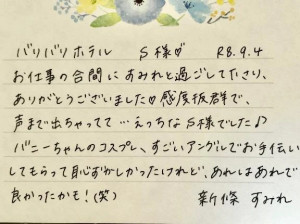 バリバリホテル S様♡ R8.9.4
お仕事の合間にすみれと過ごして下さり、
ありがとうございました♡感度抜群で、
声まで出ちゃってて…えっちなS様でした♪
バニーちゃんのコスプレ、すごいアングルでお手伝い
してもらって恥ずかしかったけれど、あれはあれで
良かったかも!(笑) 新條 すみれ